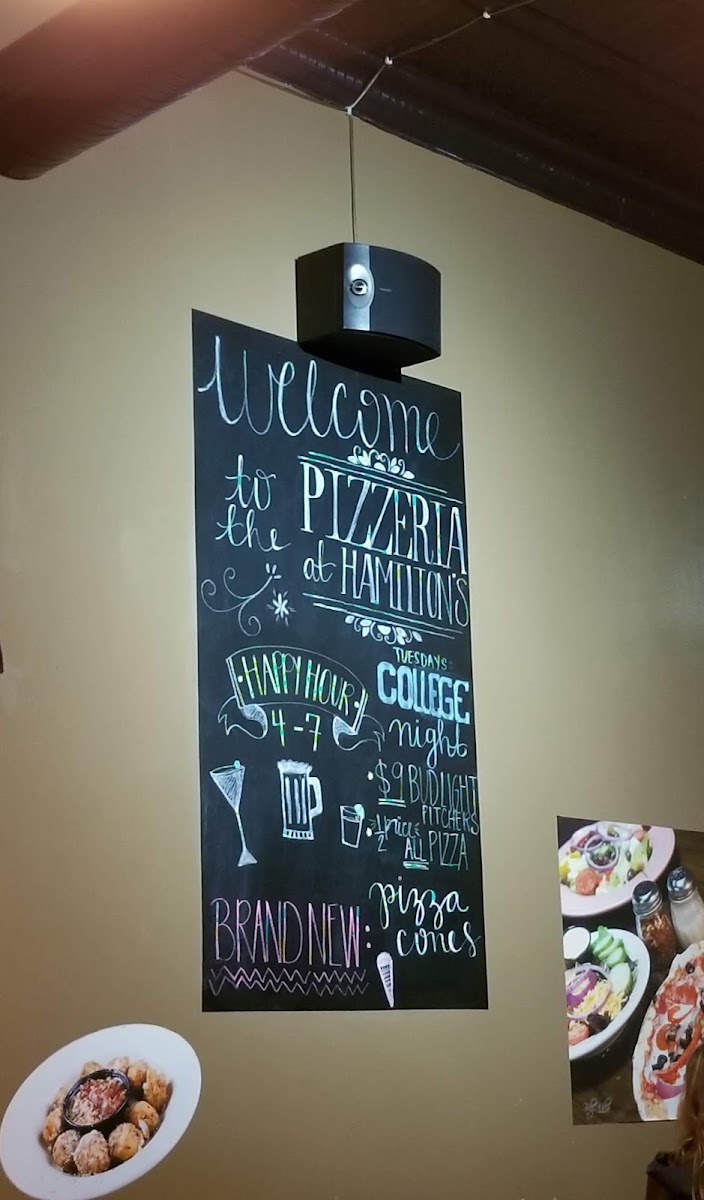 Welcome
to
the
PIZZERIA
at HAMILTON'S
HAPPY HOUR
4-7
TUESDAYS:
COLLEGE
night
$9 BUD LIGHT
PITCHERS
1/2 price
ALL PIZZA
BRAND NEW:
pizza
cones